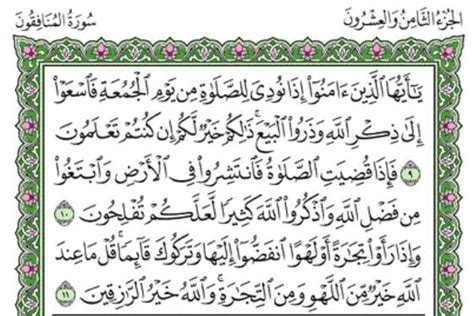 الجزء الثامن والعشرون سورة المنافقون
يَٰٓأَيُّهَا ٱلَّذِينَ ءَامَنُوٓا۟ إِذَا نُودِىَ لِلصَّلَوٰةِ مِن يَوْمِ ٱلْجُمُعَةِ فَٱسْعَوْا۟
إِلَىٰ ذِكْرِ ٱللَّهِ وَذَرُوا۟ ٱلْبَيْعَ ۚ ذَٰلِكُمْ خَيْرٌ لَّكُمْ إِن كُنتُمْ تَعْلَمُونَ
٩ فَإِذَا قُضِيَتِ ٱلصَّلَوٰةُ فَٱنتَشِرُوا۟ فِى ٱلْأَرْضِ وَٱبْتَغُوا۟
مِن فَضْلِ ٱللَّهِ وَٱذْكُرُوا۟ ٱللَّهَ كَثِيرًا لَّعَلَّكُمْ تُفْلِحُونَ ١٠
وَإِذَا رَأَوْا۟ تِجَٰرَةً أَوْ لَهْوًا ٱنفَضُّوٓا۟ إِلَيْهَا وَتَرَكُوكَ قَآئِمًا ۚ قُلْ مَا عِندَ
ٱللَّهِ خَيْرٌ مِّنَ ٱللَّهْوِ وَمِنَ ٱلتِّجَٰرَةِ ۚ وَٱللَّهُ خَيْرُ ٱلرَّٰزِقِينَ ١١